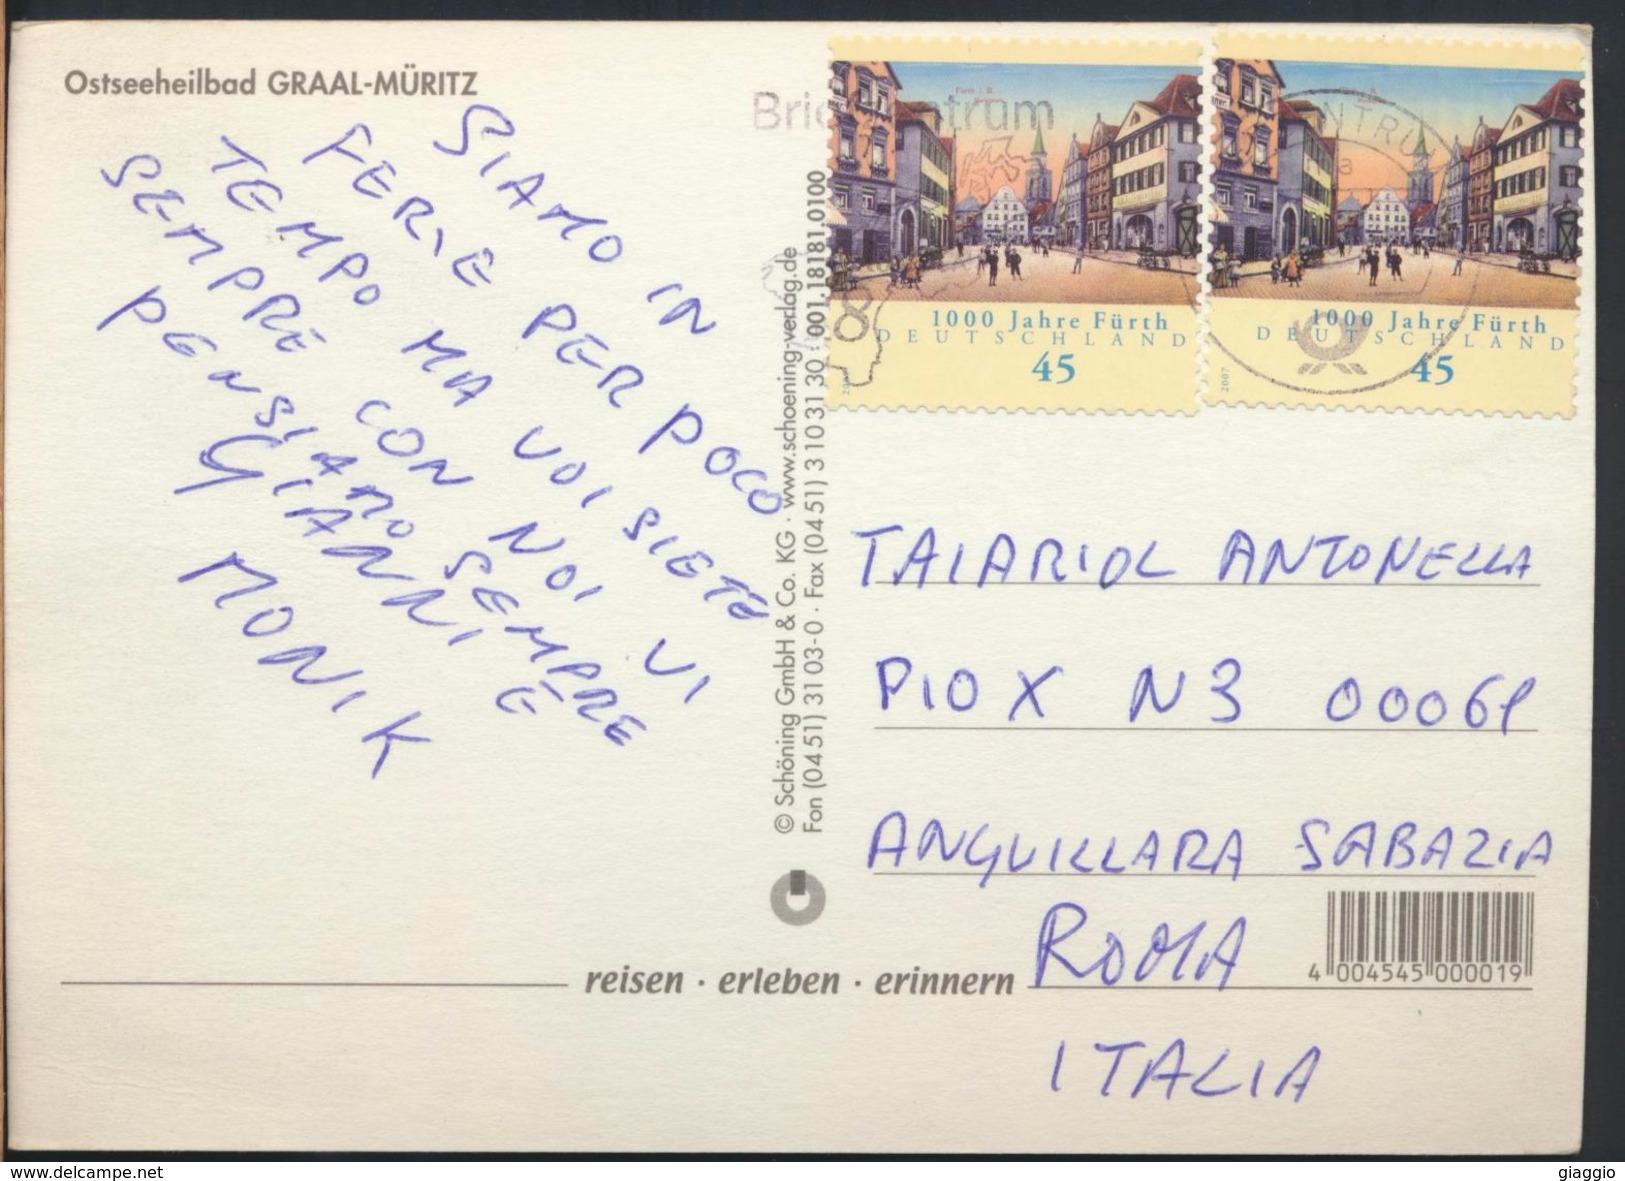 Ostseeheilbad GRAAL-MÜRITZ
SIAMO IN
FERIE PER POCO
TEMPO MA VOI SIETE
SEMPRE CON NOI VI
PENSIAMO SEMPRE
GIANNI E
MONIK
© Schöning GmbH & Co. KG · www.schoening-verlag.de
Fon (04 51) 3 10 3-0 · Fax (04 51) 3 10 31 30 · 001.18181.0100
1000 Jahre Fürth
DEUTSCHLAND
45
1000 Jahre Fürth
DEUTSCHLAND
45
2007
TAIARIOL ANTONELLA
PIO X N 3 00061
ANGUILLARA SABAZIA
ROMA
4 004545 000019
reisen · erleben · erinnern
ITALIA
www.delcampe.net
giaggio